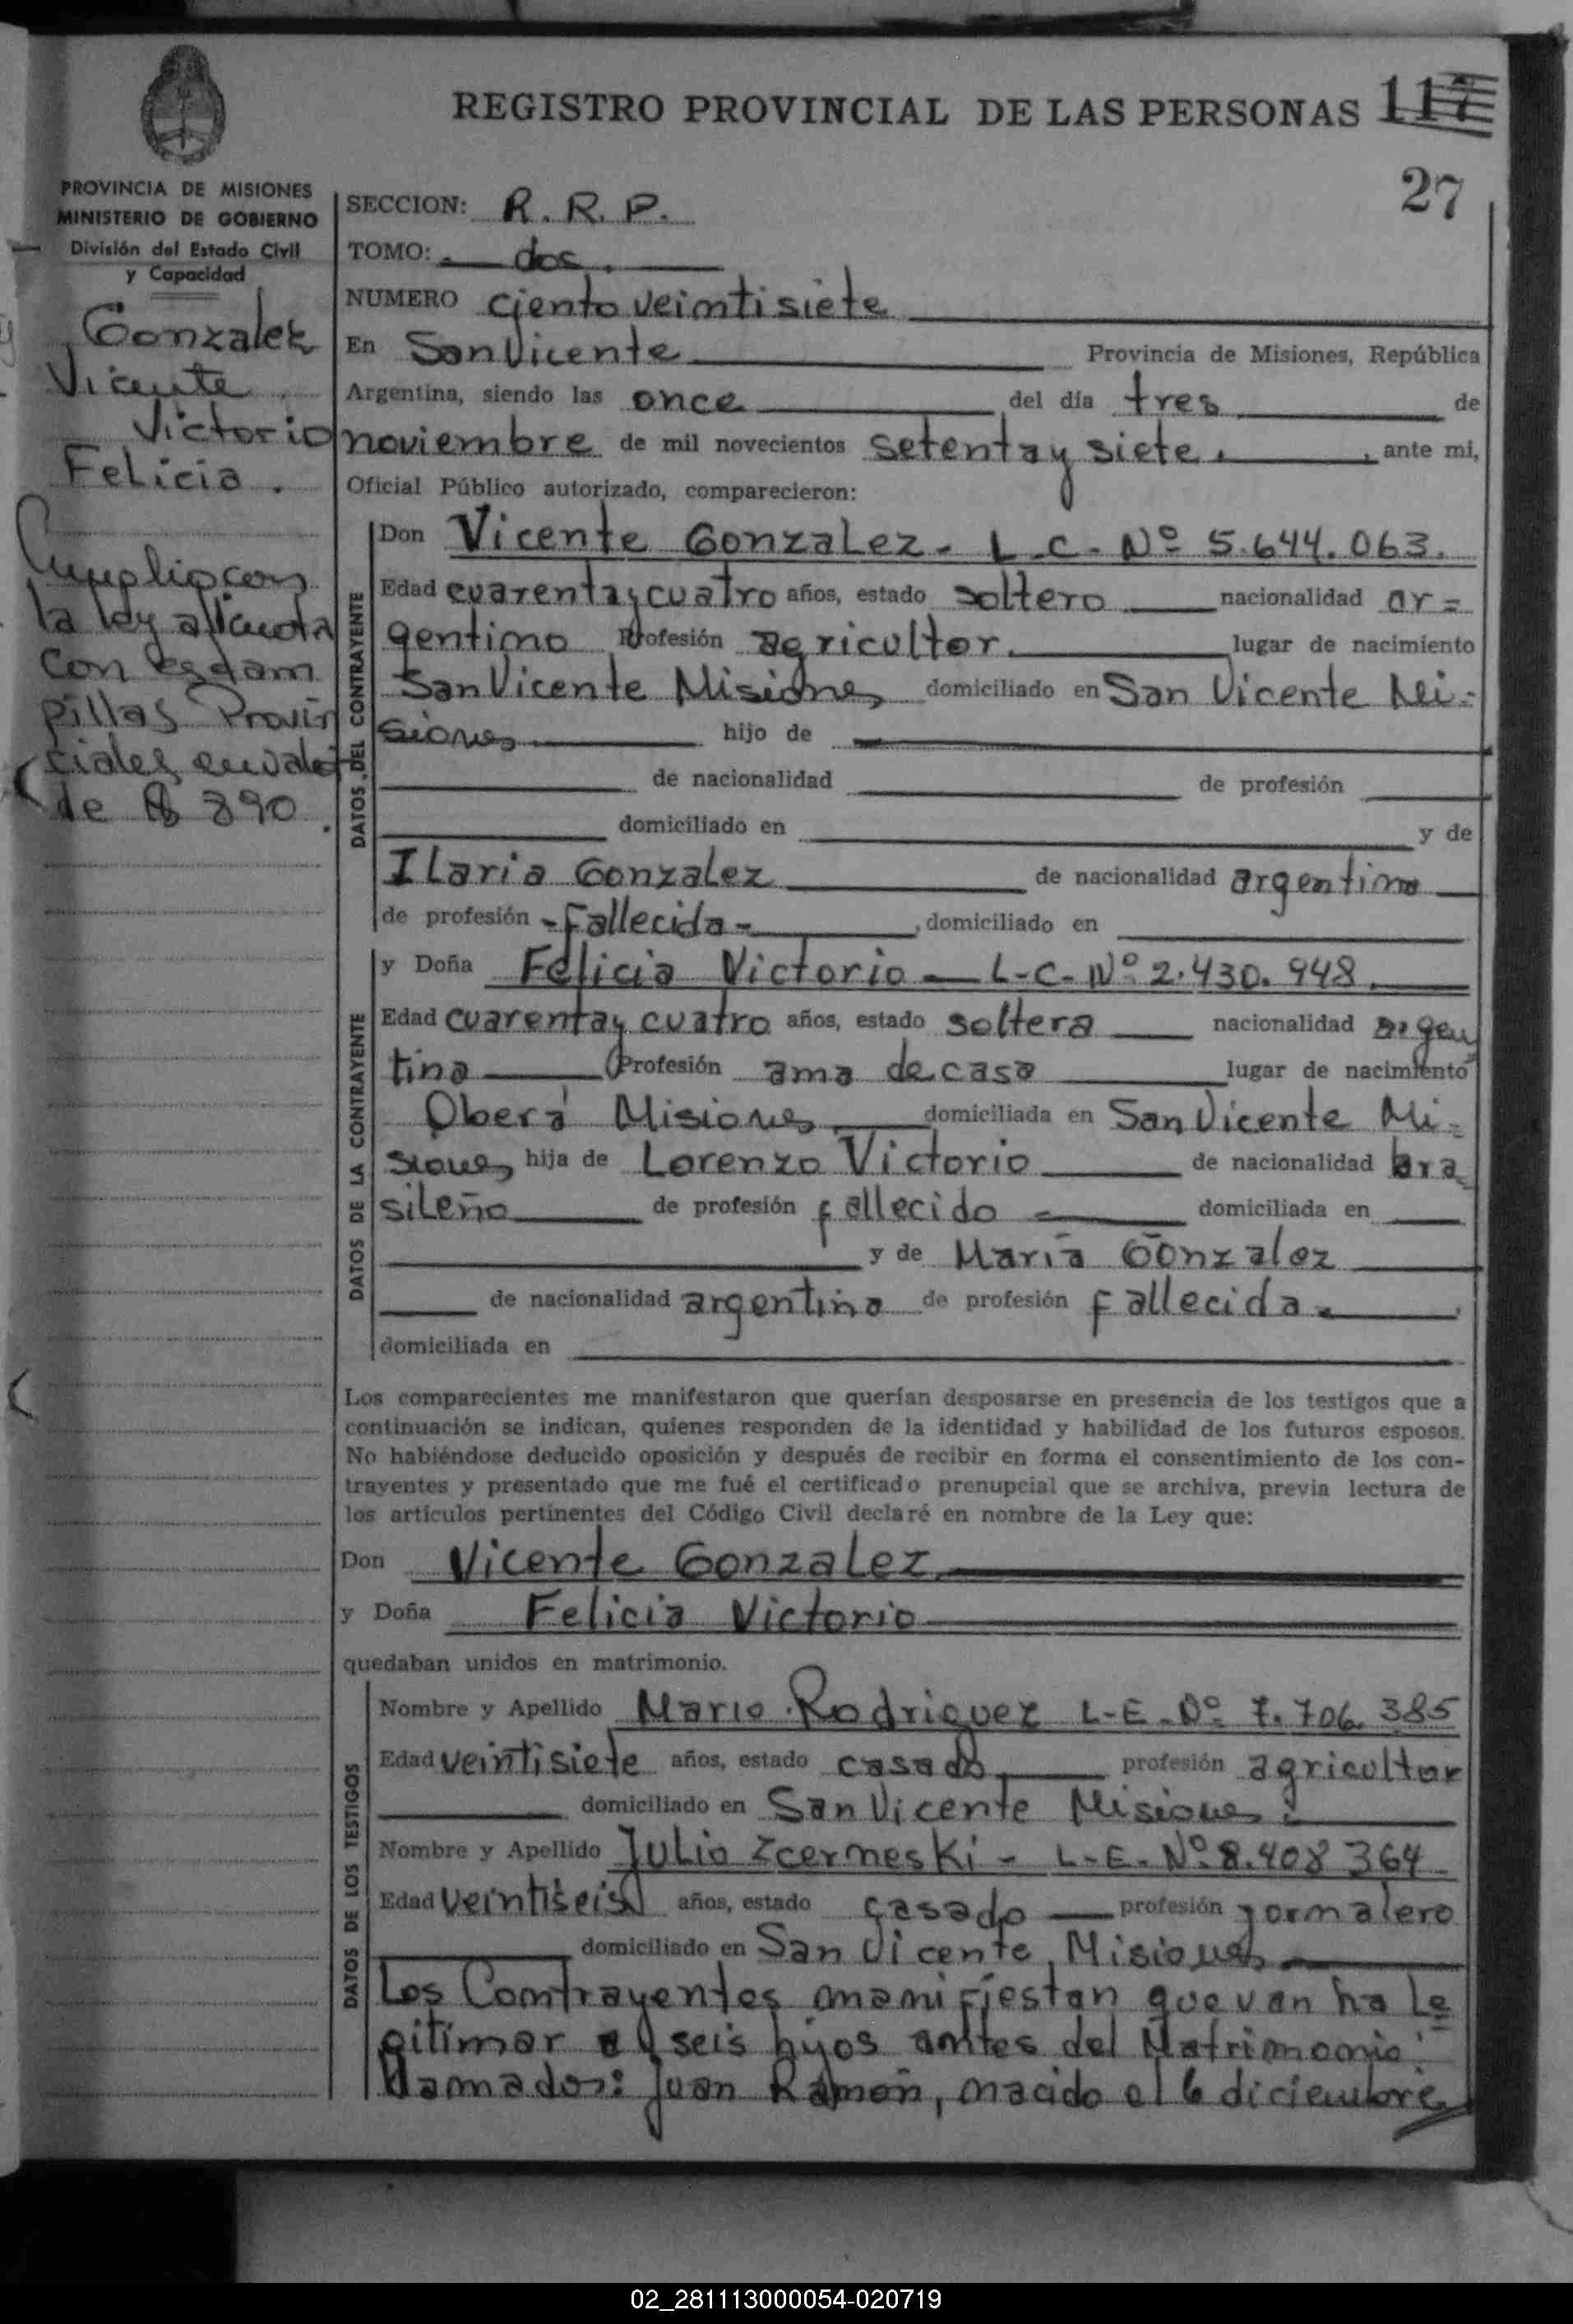 REGISTRO PROVINCIAL DE LAS PERSONAS 117
27
PROVINCIA DE MISIONES
MINISTERIO DE GOBIERNO
División del Estado Civil
y Capacidad
Gonzalez
Vicente
Victorio
Felicia.
Cumplio con
la ley alicuota
con estam
pillas Provin
ciales en valor
de $ 890.
SECCION: R. R. P.
TOMO: dos.
NUMERO ciento veintisiete
En San Vicente Provincia de Misiones, República
Argentina, siendo las once del día tres de
noviembre de mil novecientos setenta y siete, ante mi,
Oficial Público autorizado, comparecieron:
DATOS DEL CONTRAYENTE
Don Vicente Gonzalez - L-C- Nº 5.644.063.
Edad cuarenta y cuatro años, estado soltero nacionalidad ar=
gentino Profesión agricultor. lugar de nacimiento
San Vicente Misiones domiciliado en San Vicente Mi=
siones hijo de
de nacionalidad de profesión
domiciliado en y de
Ilaria Gonzalez de nacionalidad argentina
de profesión -Fallecida- , domiciliado en
DATOS DE LA CONTRAYENTE
y Doña Felicia Victorio - L-C- Nº 2.430.948.
Edad cuarenta y cuatro años, estado soltera nacionalidad argen
tina Profesión ama de casa lugar de nacimiento
Oberá Misiones domiciliada en San Vicente Mi=
siones hija de Lorenzo Victorio de nacionalidad bra
sileño de profesión fallecido - domiciliada en
y de María Gonzalez
de nacionalidad argentina de profesión fallecida
domiciliada en
Los comparecientes me manifestaron que querían desposarse en presencia de los testigos que a
continuación se indican, quienes responden de la identidad y habilidad de los futuros esposos.
No habiéndose deducido oposición y después de recibir en forma el consentimiento de los con-
trayentes y presentado que me fué el certificado prenupcial que se archiva, previa lectura de
los artículos pertinentes del Código Civil declaré en nombre de la Ley que:
Don Vicente Gonzalez
y Doña Felicia Victorio
quedaban unidos en matrimonio.
DATOS DE LOS TESTIGOS
Nombre y Apellido Mario Rodriguez L-E-Nº 7.706.385
Edad veintisiete años, estado casado profesión agricultor
domiciliado en San Vicente Misiones
Nombre y Apellido Julio Zcermeski - L-E-Nº 8.408 364
Edad veintiseis años, estado casado profesión jornalero
domiciliado en San Vicente, Misiones
Los Contrayentes manifiestan que van ha le
gitimar a seis hijos antes del Matrimonio:
llamados: Juan Ramon, nacido el 6 diciembre
02_281113000054-020719